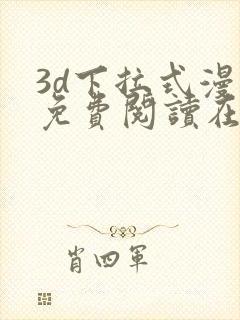 3d下拉式漫
免費閱讀在
肖四軍